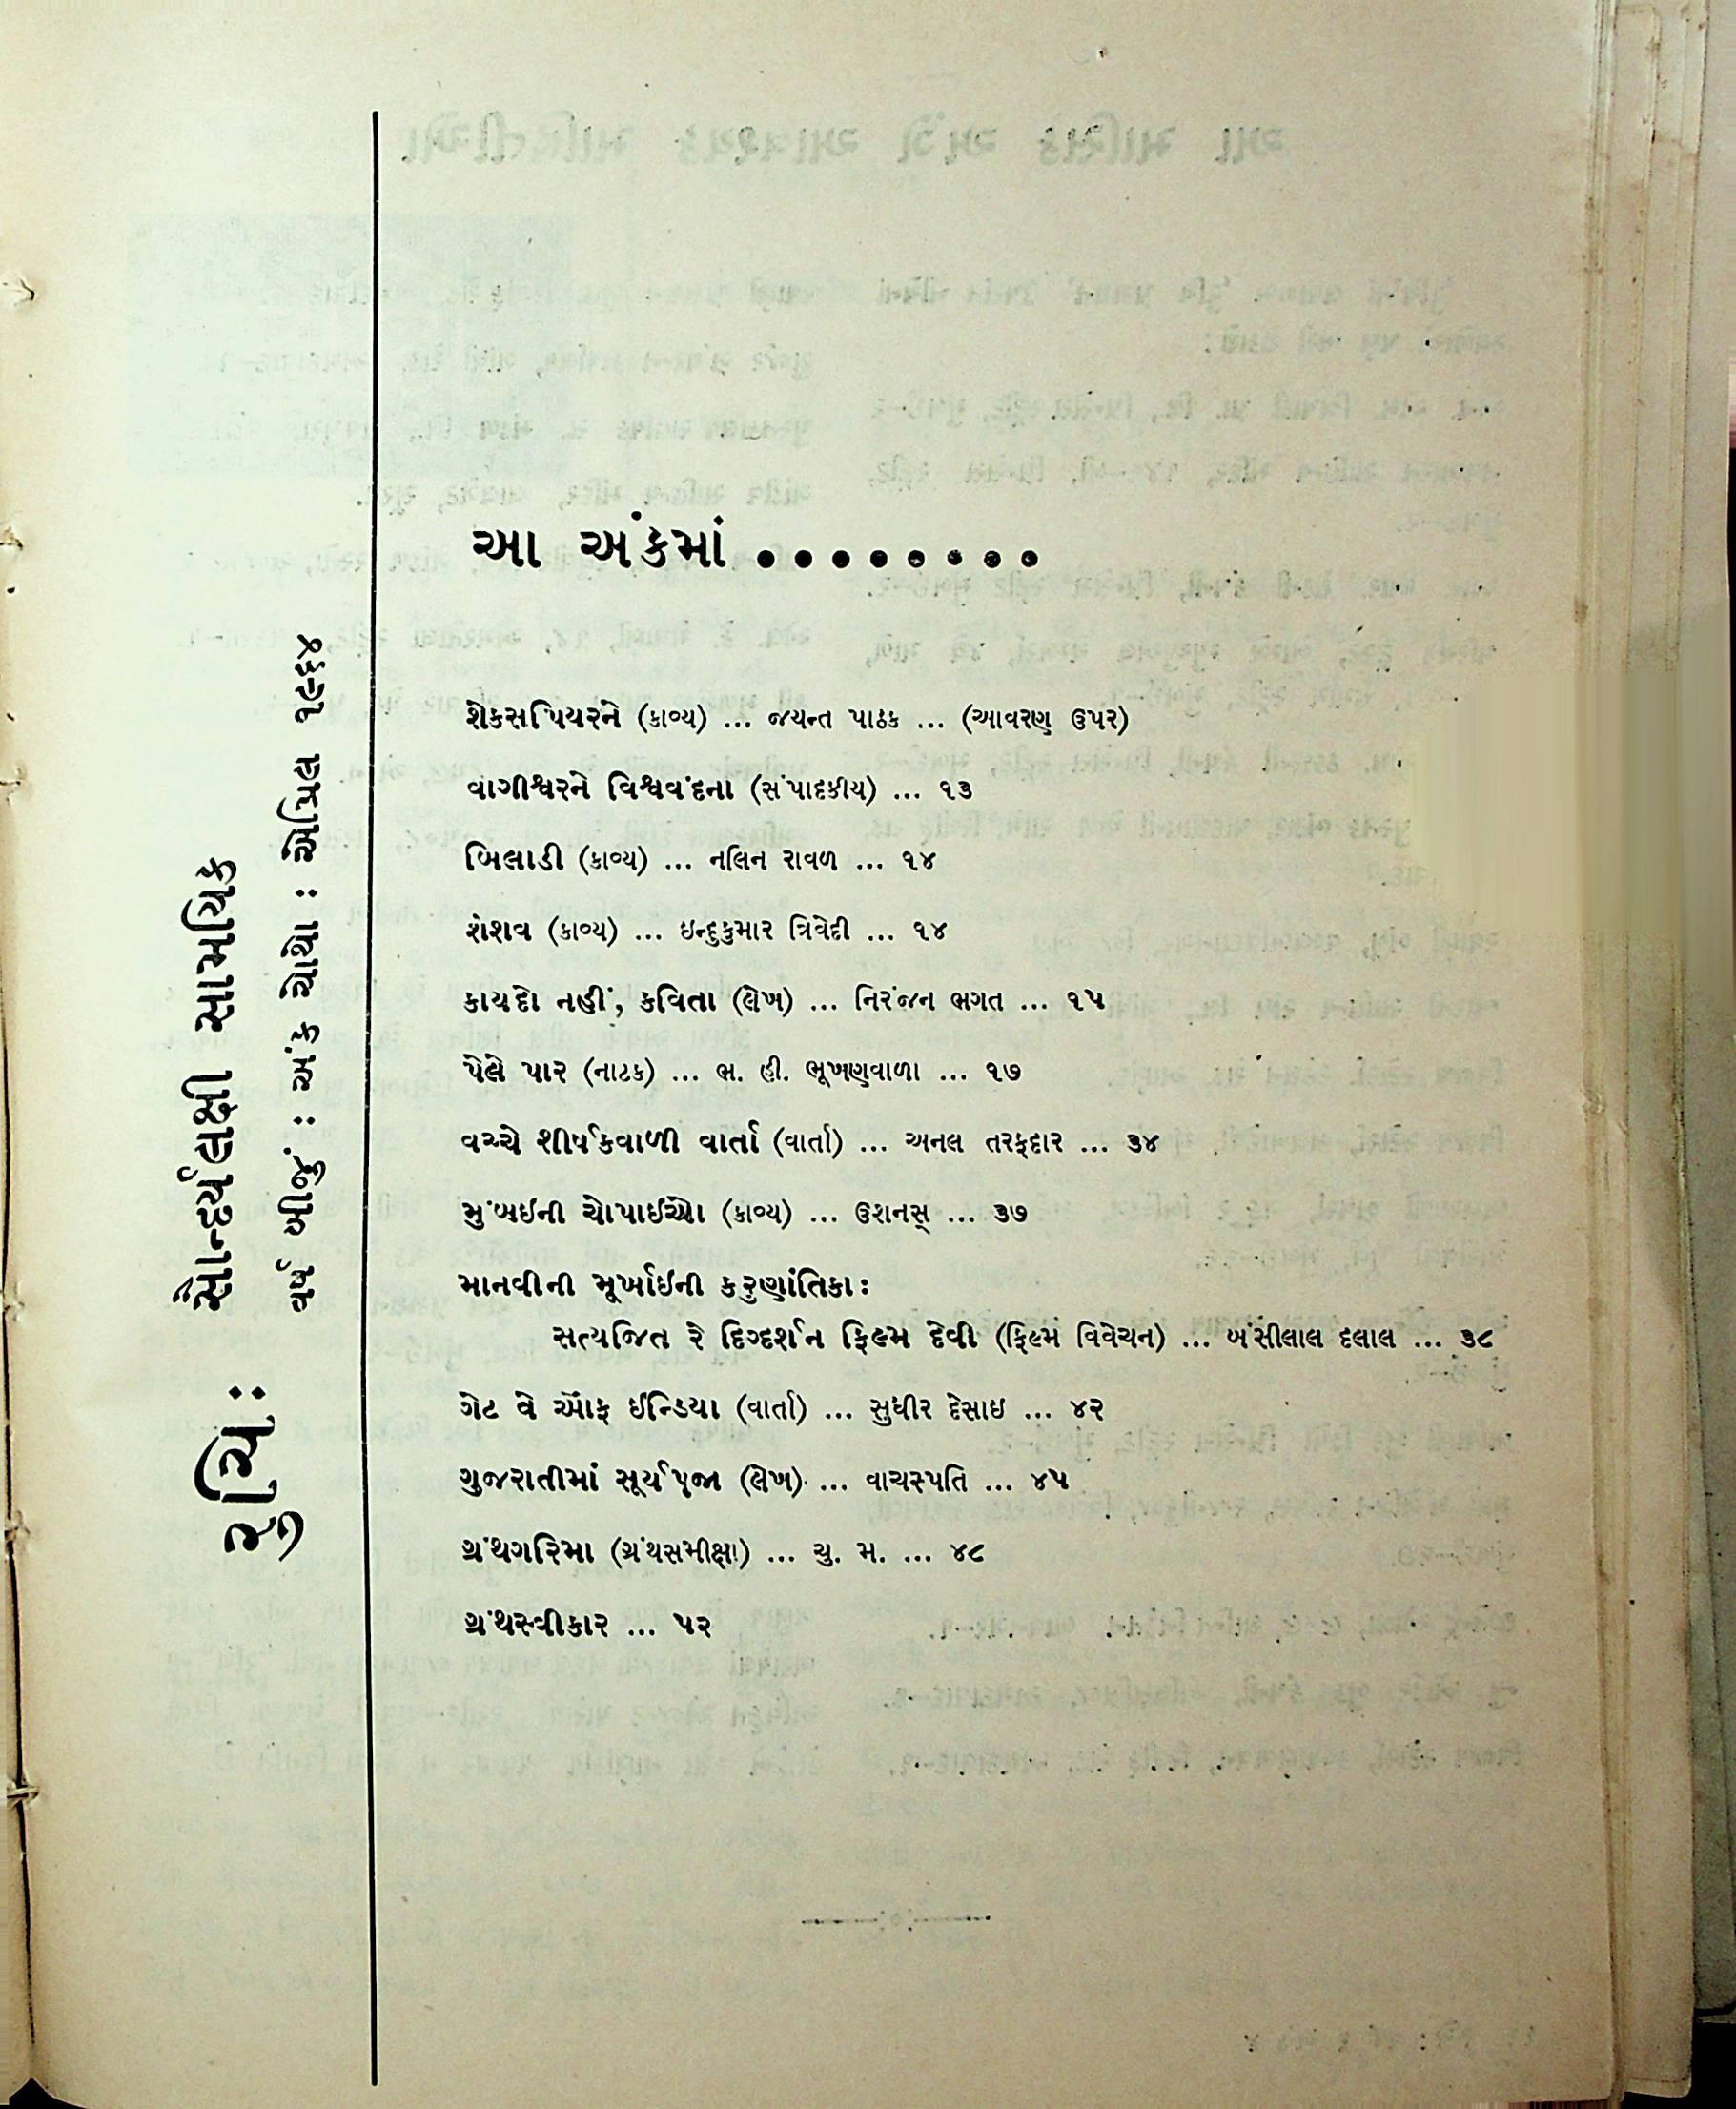 રુચિ : સૌન્દર્યલક્ષી સામયિક
વર્ષ બીજું : અંક ચોથો : એપ્રિલ ૧૯૬૪
આ અંકમાં ........
શેકસપિયરને (કાવ્ય) ... જયન્ત પાઠક ... (આવરણ ઉપર)
વાગીશ્વરને વિશ્વવંદના (સંપાદકીય) ... ૧૩
બિલાડી (કાવ્ય) ... નલિન રાવળ ... ૧૪
શેશવ (કાવ્ય) ... ઇન્દુકુમાર ત્રિવેદી ... ૧૪
કાયદો નહીં, કવિતા (લેખ) ... નિરંજન ભગત ... ૧૫
પેલે પાર (નાટક) ... ભ. હી. ભૂખણવાળા ... ૧૭
વચ્ચે શીર્ષકવાળી વાર્તા (વાર્તા) ... અનલ તરફદાર ... ૩૪
મુંબઇની ચોપાઈઓ (કાવ્ય) ... ઉશનસ્ ... ૩૭
માનવીની મૂર્ખાઇની કરુણાંતિકા:
સત્યજિત રે દિગ્દર્શન ફિલ્મ દેવી (ફિલ્મ વિવેચન) ... બંસીલાલ દલાલ ... ૩૮
ગેટ વે ઑફ ઈન્ડિયા (વાર્તા) ... સુધીર દેસાઇ ... ૪૨
ગુજરાતીમાં સૂર્યપૂજા (લેખ) ... વાચસ્પતિ ... ૪૫
ગ્રંથગરિમા (ગ્રંથસમીક્ષા) ... ચુ. મ. ... ૪૮
ગ્રંથસ્વીકાર ... ૫૨